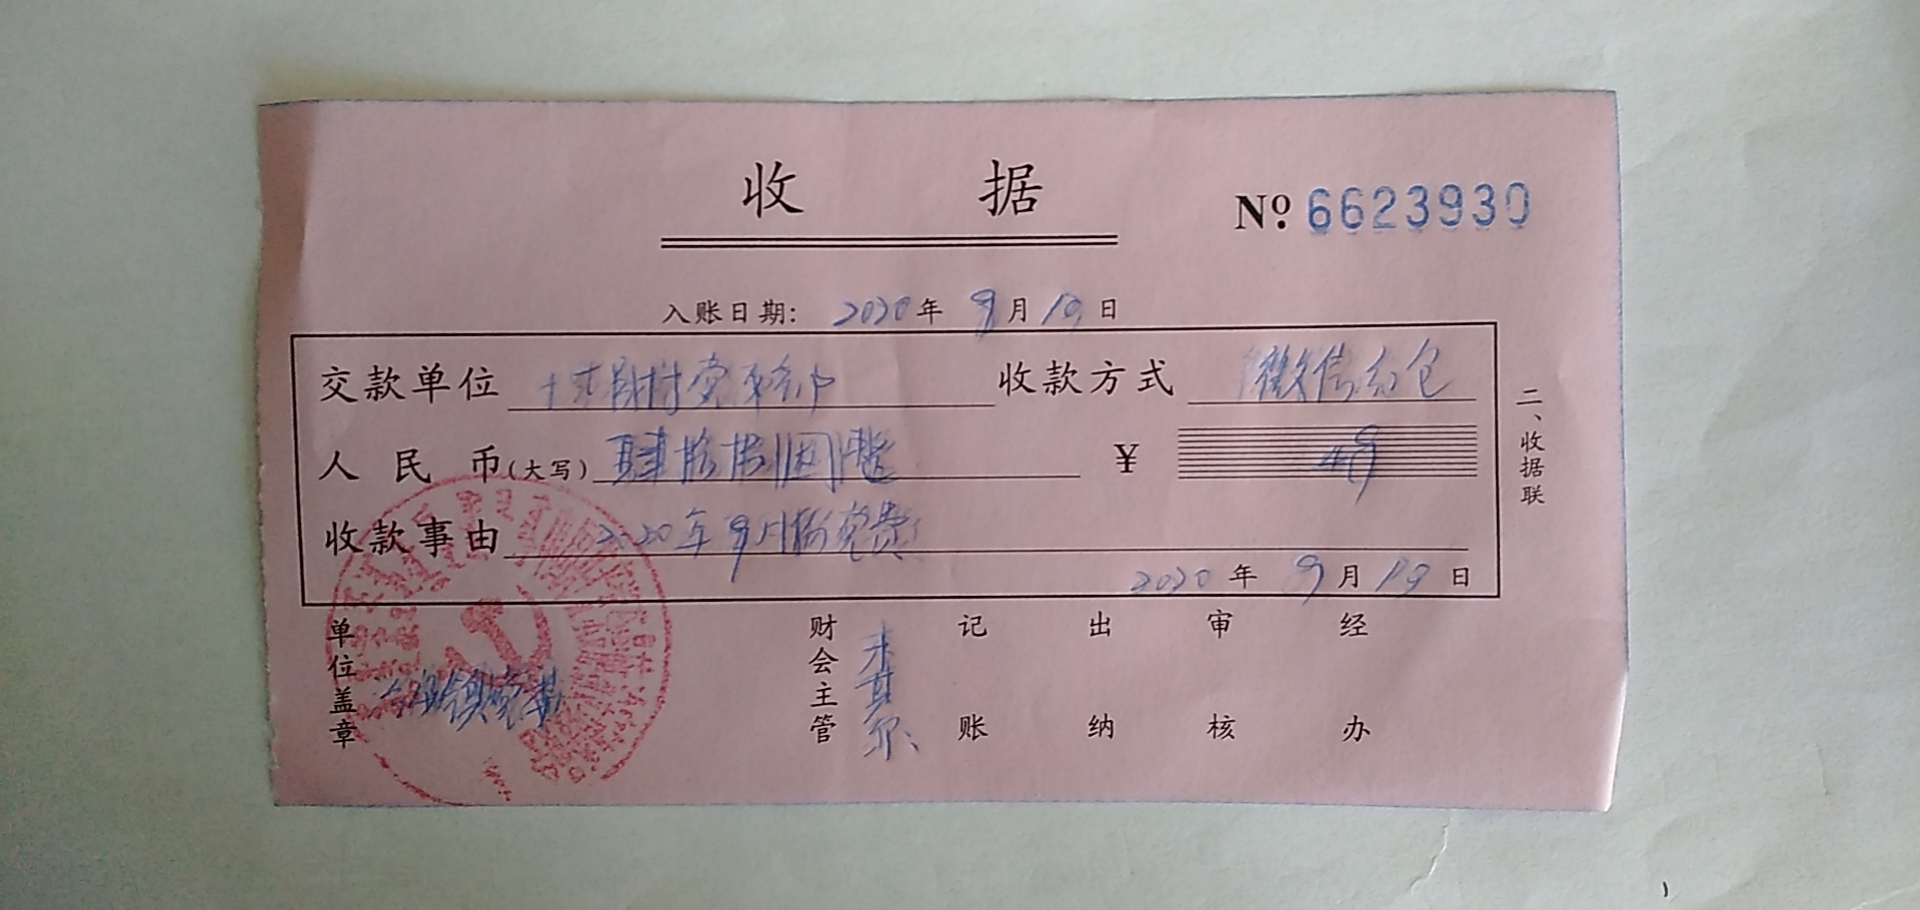 收 据
No. 6623930
入账日期: 2020年 9月19日
交款单位 村党支部 收款方式 微信红包
人民币(大写) 肆拾捌圆整 ¥
收款事由 2020年9月份党费
2020年 9月19日
二、收据联
单位盖章
财会主管
记账
出纳
审核
经办